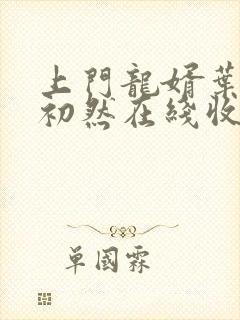 上門龍婿葉
初然在綫收
單國霖